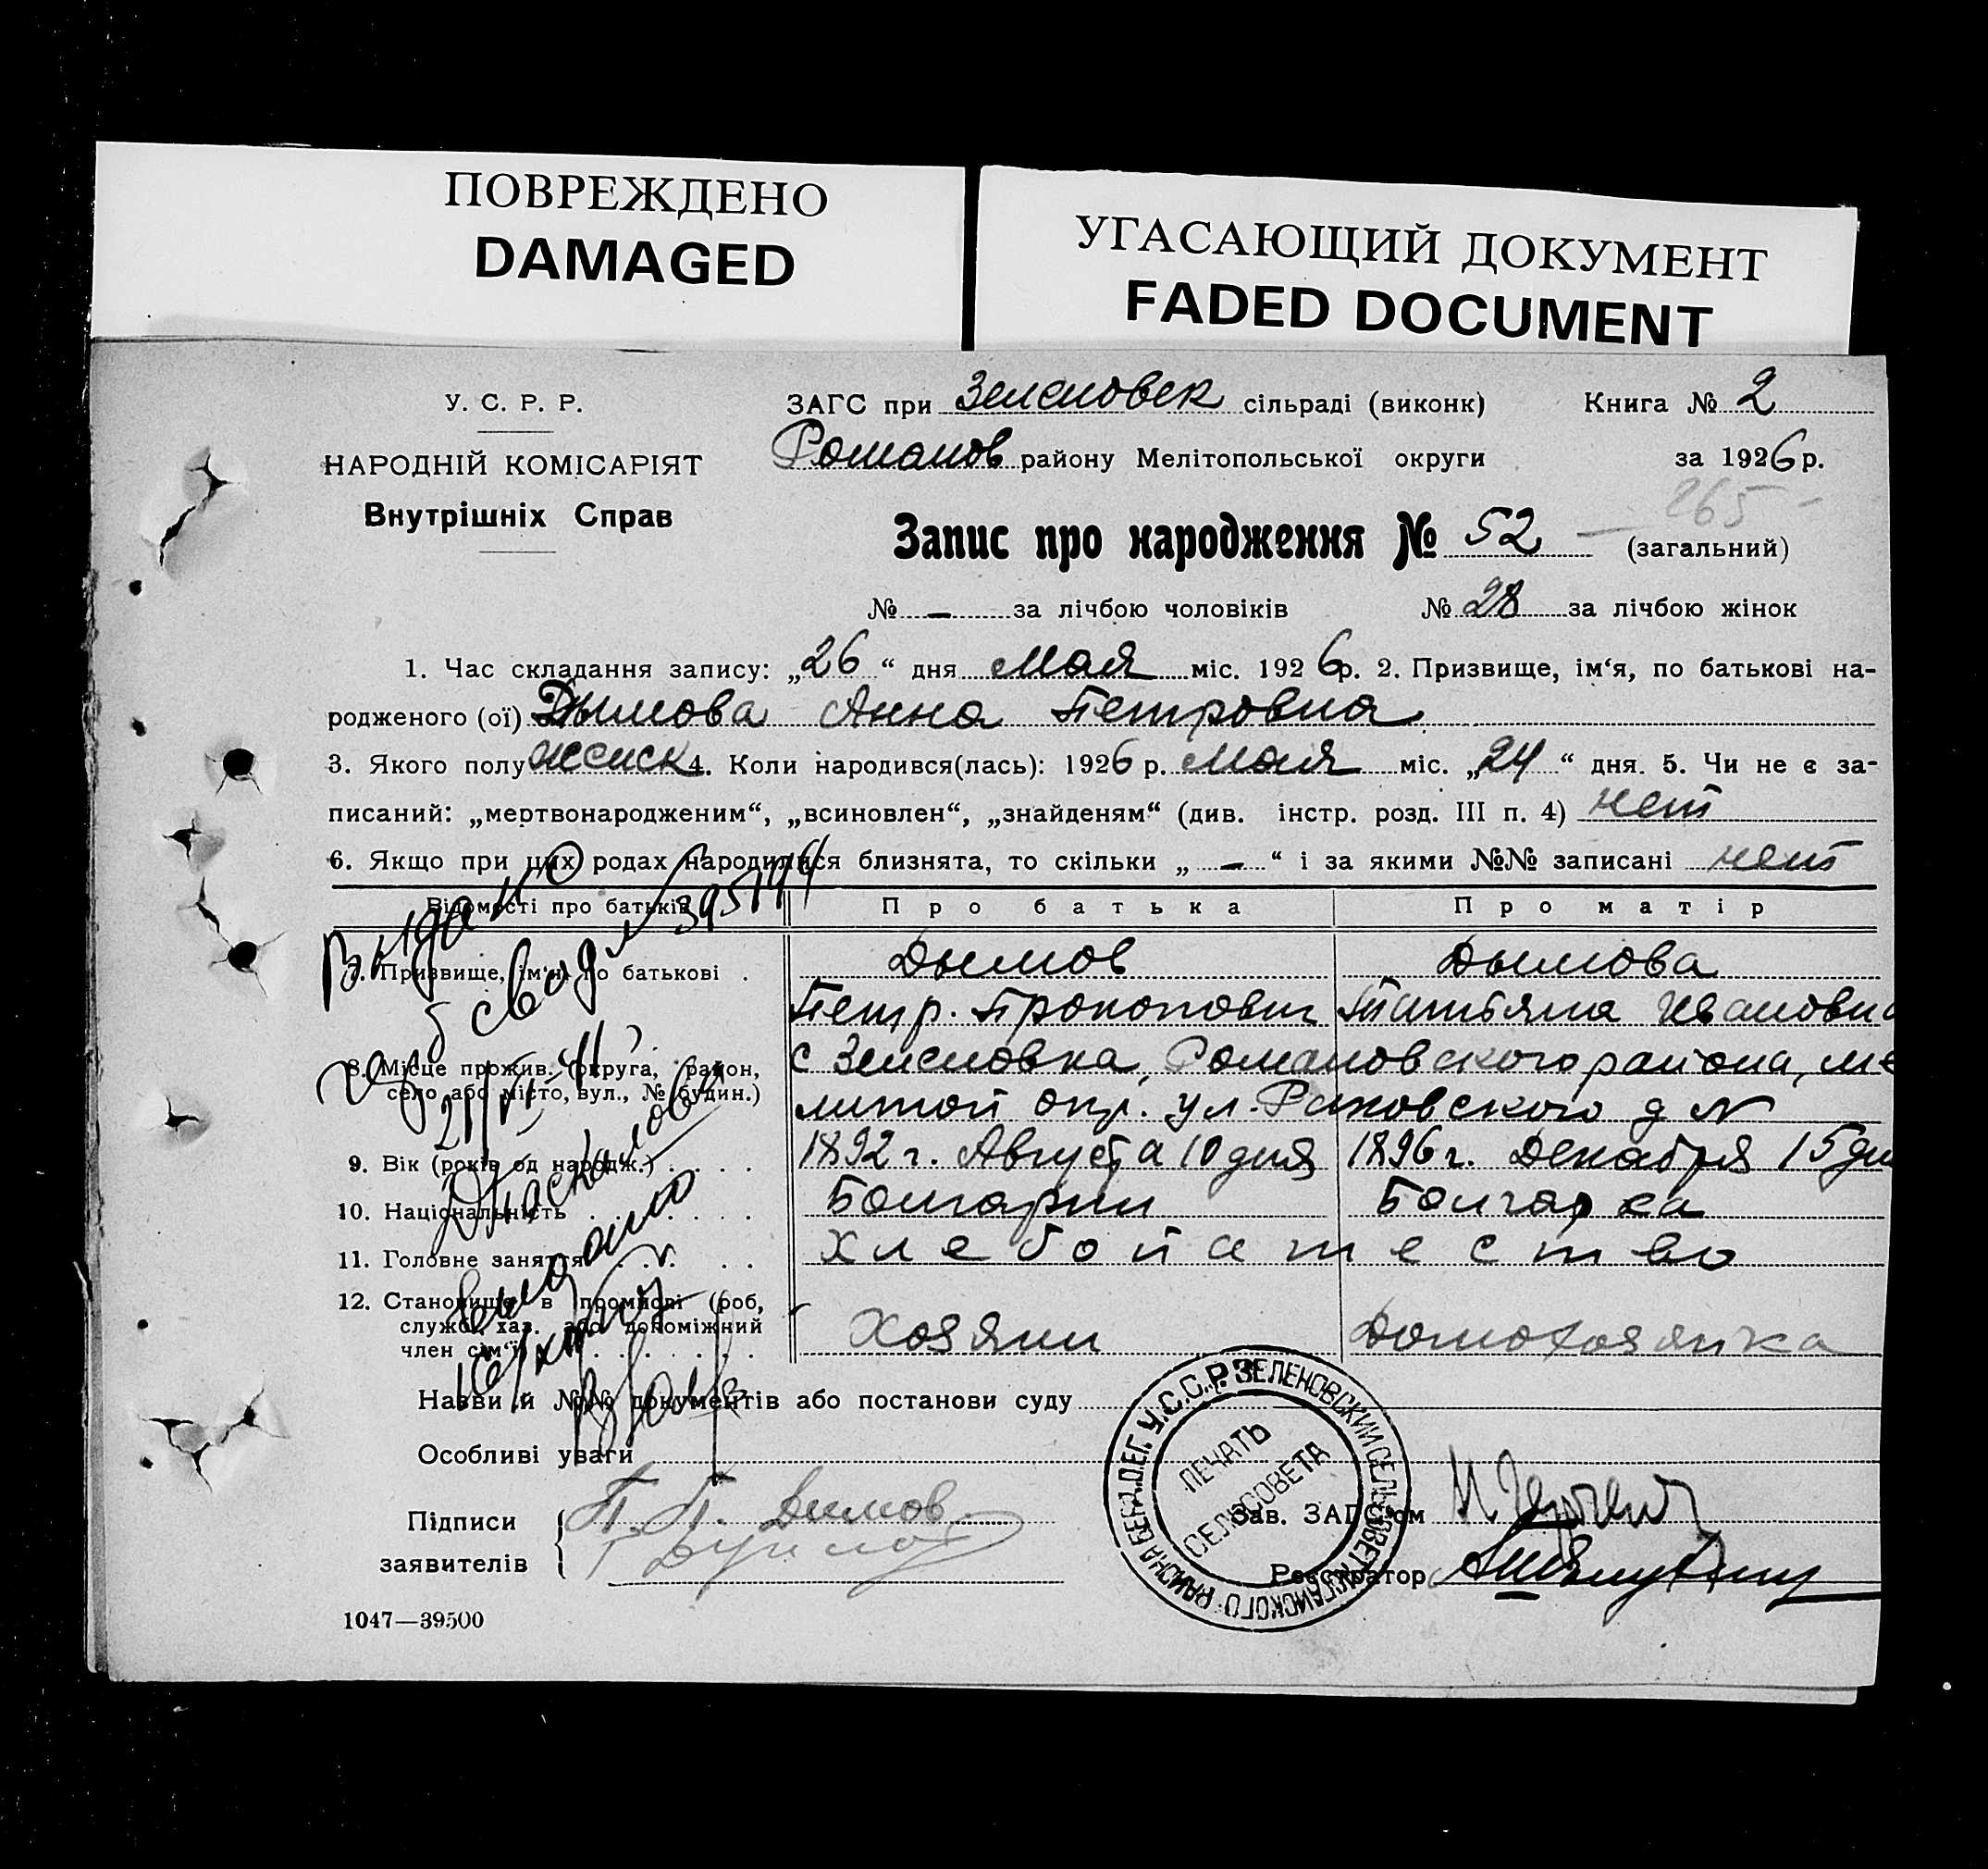 ПОВРЕЖДЕНО
DAMAGED
УГАСАЮЩИЙ ДОКУМЕНТ
FADED DOCUMENT
У. С. Р. Р.
НАРОДНІЙ КОМІСАРІЯТ
Внутрішніх Справ
ЗАГС при Зеленовск сільраді (виконк) Книга № 2
Романов району Мелітопольської округи за 1926 р.
265 -
Запис про народження № 52 — (загальний)
№ — за лічбою чоловіків № 28 за лічбою жінок
1. Час складання запису: „26“ дня Мая міс. 1926 р. 2. Призвище, ім‘я, по батькові на-
родженого (ої) Дымова Анна Петровна
3. Якого полу женск 4. Коли народився(лась): 1926 р. Мая міс. „24“ дня. 5. Чи не є за-
писаний: „мертвонародженим“, „всиновлен“, „знайденям“ (див. інстр. розд. III п. 4) нет
6. Якщо при цих родах народилися близнята, то скільки „ — “ і за якими №№ записані нет
Відомості про батьків Про батька Про матір
7. Призвище, ім‘я, по батькові . Дымов Дымова
Петр. Прокопович Татьяна Ивановна
8. Місце прожив. (округа, район, с Зеленовка, Романовского района, ме
село або місто, вул., № будин.) литоп окр. ул. Раковского д N
9. Вік (років од народж.) . . . . 1892 г. Августа 10 дня 1896 г. Декабря 15 дня
10. Національність . . . . . . . Болгарин Болгарка
11. Головне заняття . . . . . . Хлебопашество
12. Становище в промислі (роб,
служб. хаз. або допоміжний Хозяин Домохозяйка
член сім‘ї) . . . . . . .
Выдано
свид N 395194
Выдано
Назви й №№ документів або постанови суду
Особливі уваги
Підписи П. П. Дымов
заявителів
Зав. ЗАГС‘ом
Реєстратор
У.С.С.Р. ЗЕЛЕНОВСКИЙ СЕЛЬСОВЕТ
ПЕЧАТЬ
СЕЛЬСОВЕТА
1047—39500